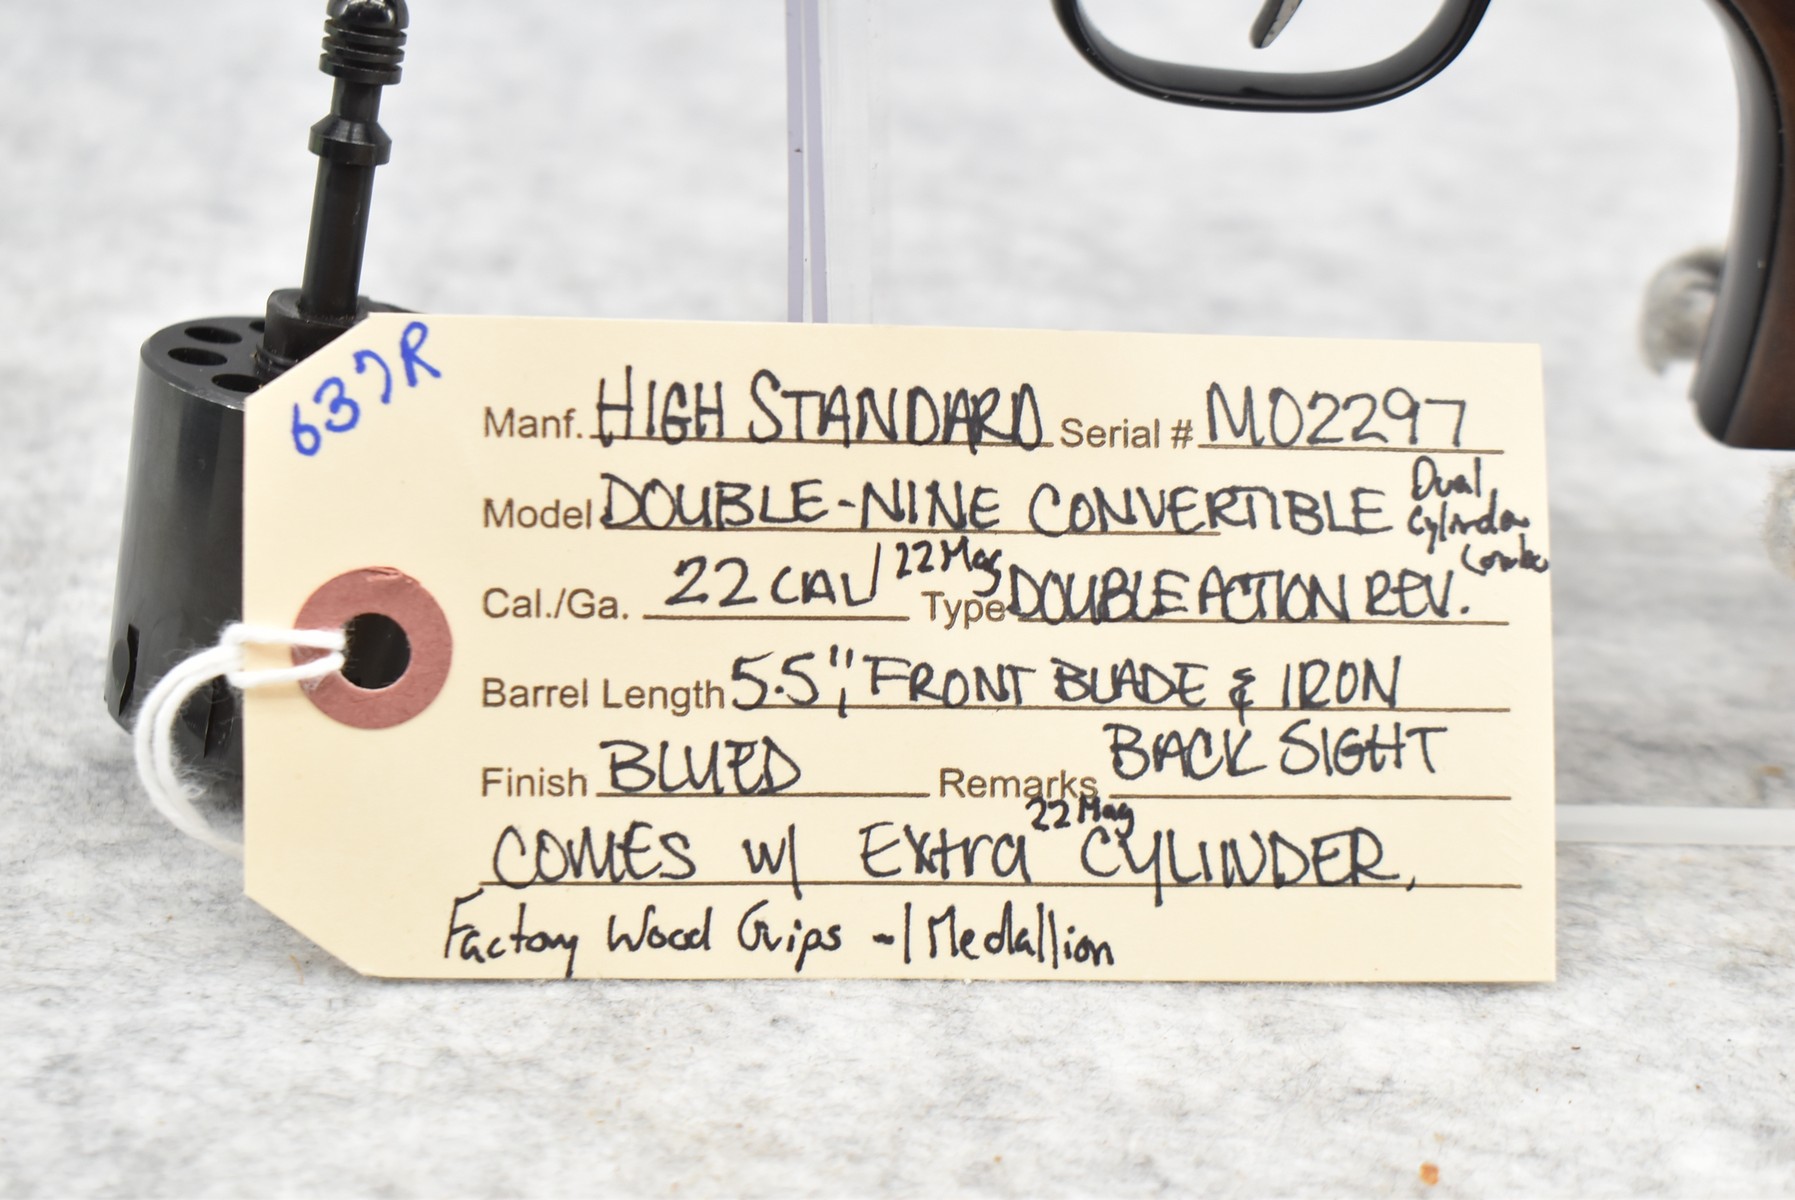 637R
Manf. HIGH STANDARD Serial # M02297
Model DOUBLE-NINE CONVERTIBLE Dual Cylinder Combo
Cal./Ga. 22 CAL/ 22 Mag Type DOUBLE ACTION REV.
Barrel Length 5.5", FRONT BLADE & IRON
Finish BLUED Remarks BACK SIGHT
COMES w/ Extra 22 Mag CYLINDER,
Factory Wood Grips -/ Medallion